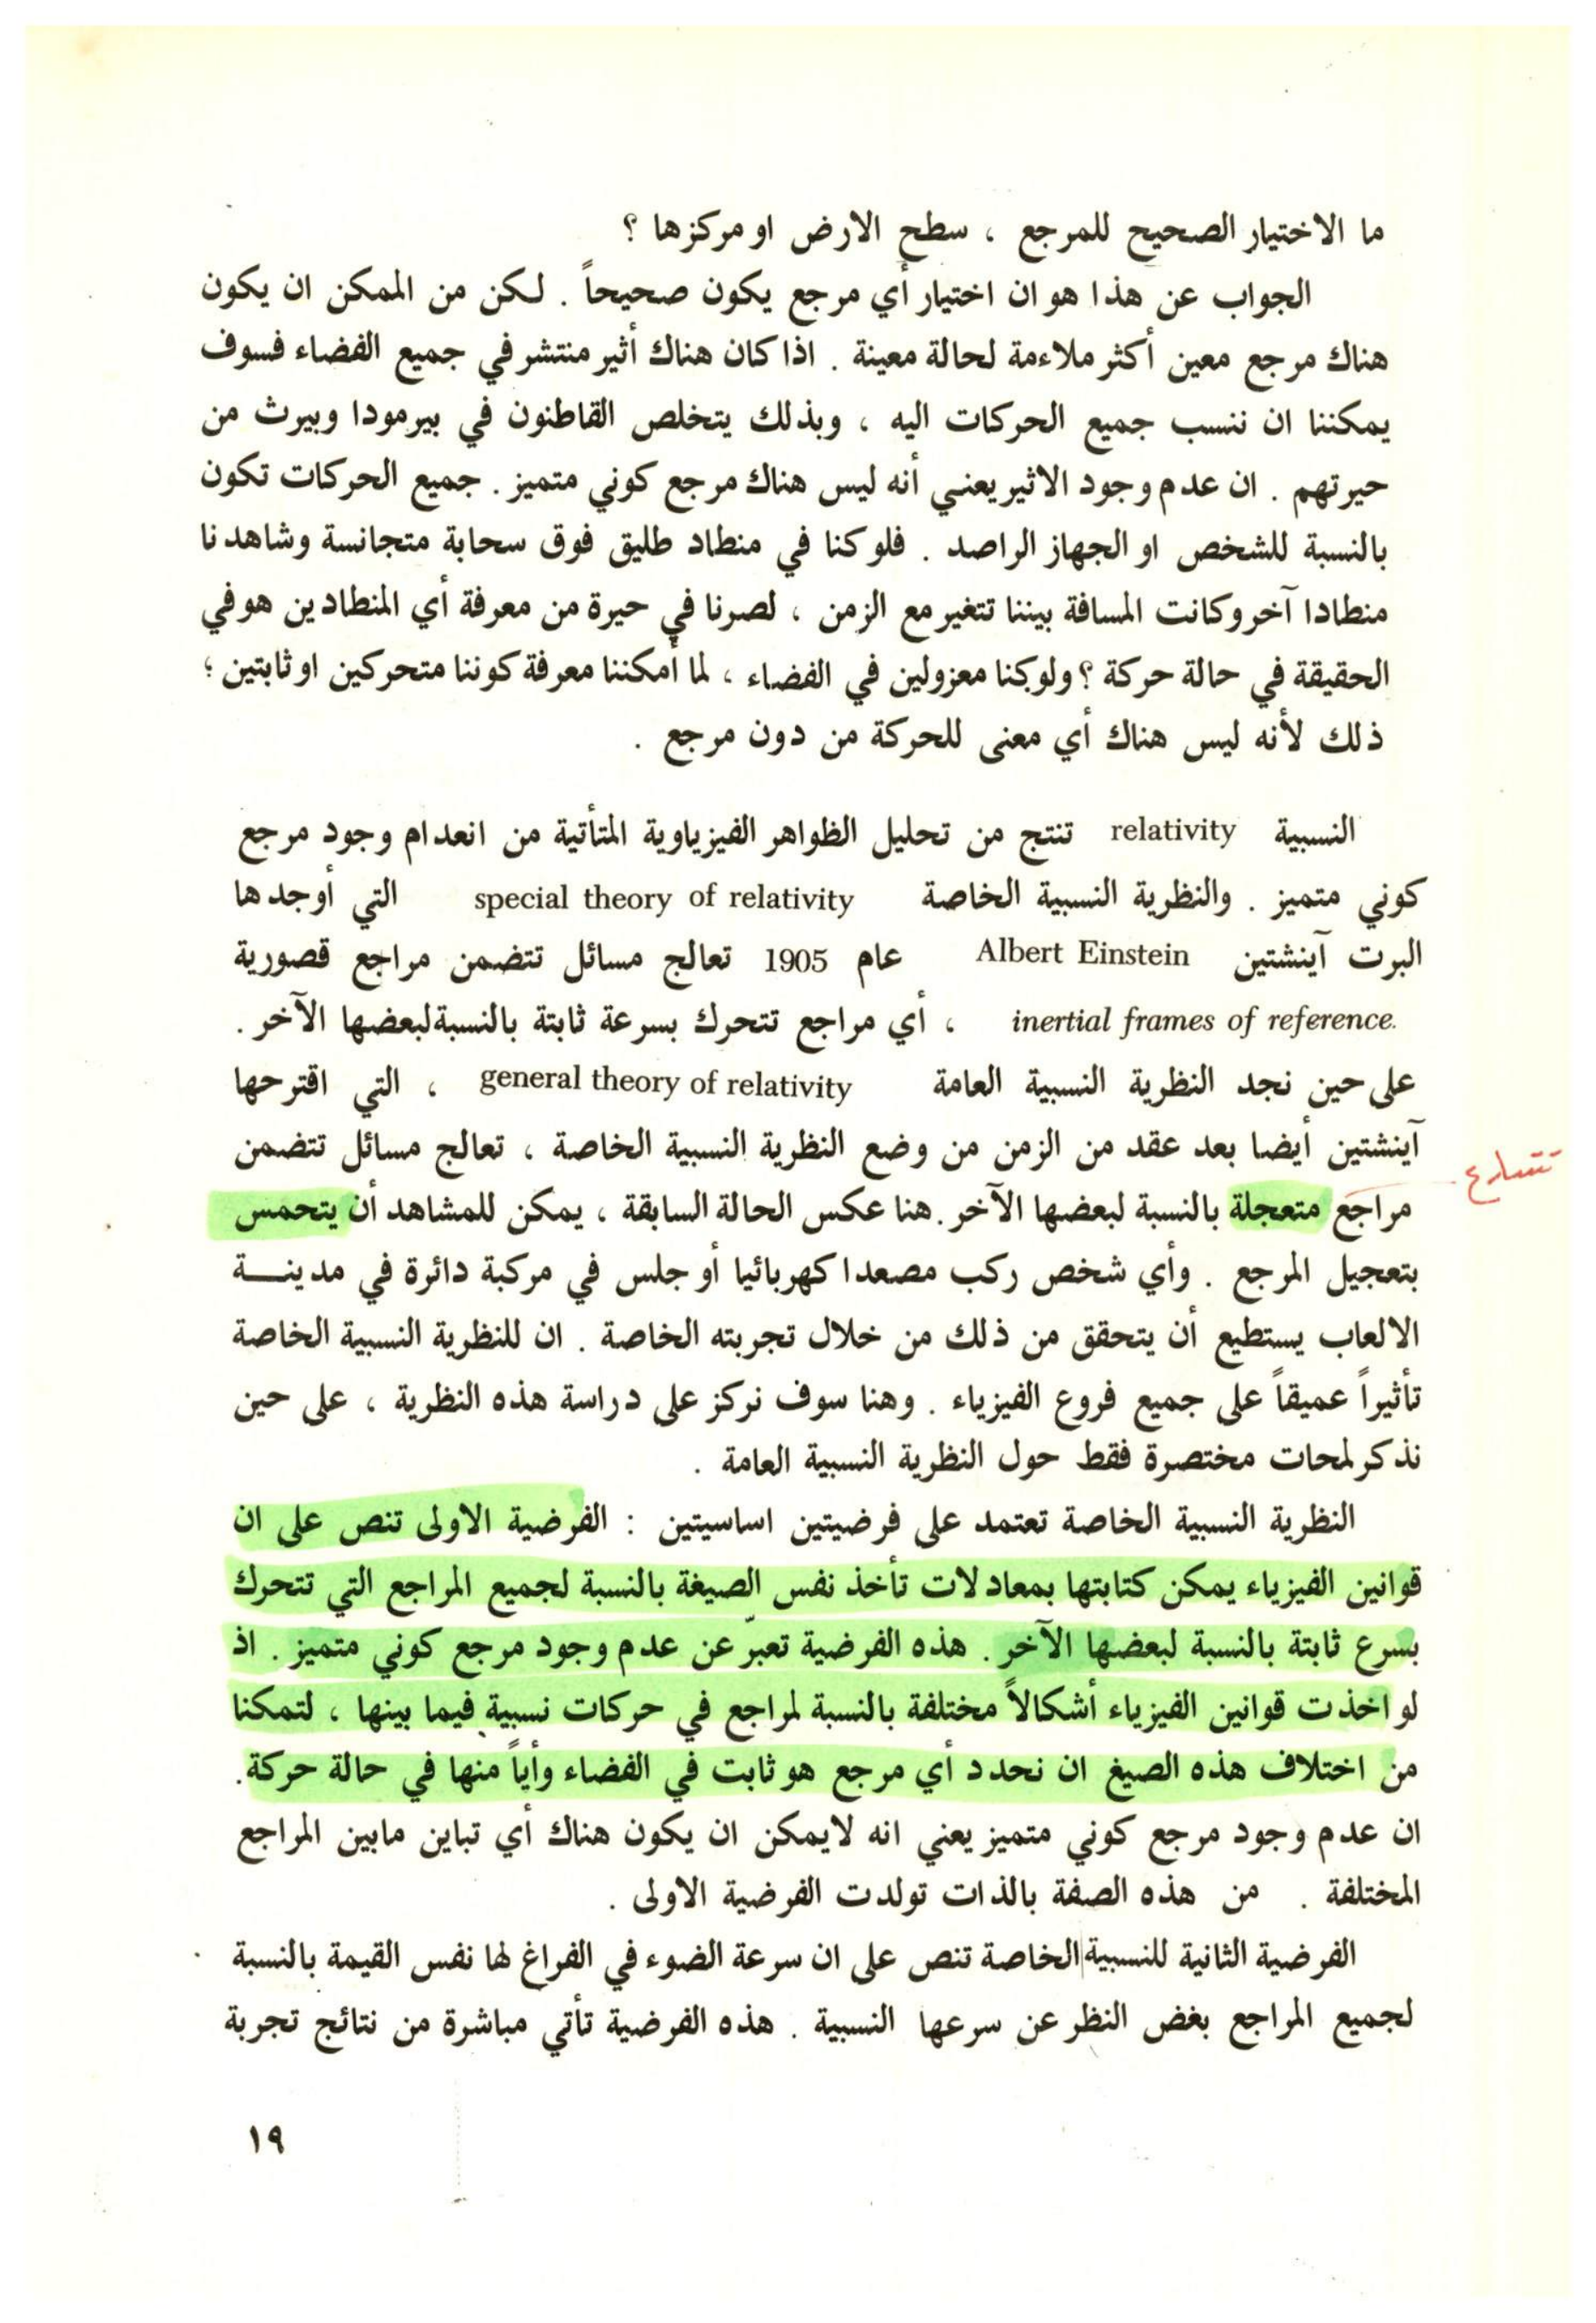 ما الاختيار الصحيح للمرجع ، سطح الارض او مركزها ؟
الجواب عن هذا هو ان اختيار أي مرجع يكون صحيحاً . لكن من الممكن ان يكون
هناك مرجع معين أكثر ملاءمة لحالة معينة . اذا كان هناك أثير منتشر في جميع الفضاء فسوف
يمكننا ان ننسب جميع الحركات اليه ، وبذلك يتخلص القاطنون في بيرمودا وبيرث من
حيرتهم . ان عدم وجود الاثير يعني أنه ليس هناك مرجع كوني متميز . جميع الحركات تكون
بالنسبة للشخص او الجهاز الراصد . فلو كنا في منطاد طليق فوق سحابة متجانسة وشاهدنا
منطادا آخر وكانت المسافة بيننا تتغير مع الزمن ، لصرنا في حيرة من معرفة أي المنطادين هو في
الحقيقة في حالة حركة ؟ ولو كنا معزولين في الفضاء ، لما أمكننا معرفة كوننا متحركين او ثابتين ؛
ذلك لأنه ليس هناك أي معنى للحركة من دون مرجع .
النسبية relativity تنتج من تحليل الظواهر الفيزياوية المتأتية من انعدام وجود مرجع
كوني متميز . والنظرية النسبية الخاصة special theory of relativity التي أوجدها
البرت آينشتين Albert Einstein عام 1905 تعالج مسائل تتضمن مراجع قصورية
inertial frames of reference. ، أي مراجع تتحرك بسرعة ثابتة بالنسبة لبعضها الآخر .
على حين نجد النظرية النسبية العامة general theory of relativity ، التي اقترحها
آينشتين أيضا بعد عقد من الزمن من وضع النظرية النسبية الخاصة ، تعالج مسائل تتضمن
تتسارع
مراجع متعجلة بالنسبة لبعضها الآخر . هنا عكس الحالة السابقة ، يمكن للمشاهد أن يتحمس
بتعجيل المرجع . وأي شخص ركب مصعدا كهربائيا أو جلس في مركبة دائرة في مدينـــة
الالعاب يستطيع أن يتحقق من ذلك من خلال تجربته الخاصة . ان للنظرية النسبية الخاصة
تأثيراً عميقاً على جميع فروع الفيزياء . وهنا سوف نركز على دراسة هذه النظرية ، على حين
نذكر لمحات مختصرة فقط حول النظرية النسبية العامة .
النظرية النسبية الخاصة تعتمد على فرضيتين اساسيتين : الفرضية الاولى تنص على ان
قوانين الفيزياء يمكن كتابتها بمعادلات تأخذ نفس الصيغة بالنسبة لجميع المراجع التي تتحرك
بسرع ثابتة بالنسبة لبعضها الآخر . هذه الفرضية تعبرّ عن عدم وجود مرجع كوني متميز . اذ
لو اخذت قوانين الفيزياء أشكالاً مختلفة بالنسبة لمراجع في حركات نسبية فيما بينها ، لتمكنا
من اختلاف هذه الصيغ ان نحدد أي مرجع هو ثابت في الفضاء وأياً منها في حالة حركة .
ان عدم وجود مرجع كوني متميز يعني انه لايمكن ان يكون هناك أي تباين مابين المراجع
المختلفة . من هذه الصفة بالذات تولدت الفرضية الاولى .
الفرضية الثانية للنسبية الخاصة تنص على ان سرعة الضوء في الفراغ لها نفس القيمة بالنسبة
لجميع المراجع بغض النظر عن سرعها النسبية . هذه الفرضية تأتي مباشرة من نتائج تجربة
١٩